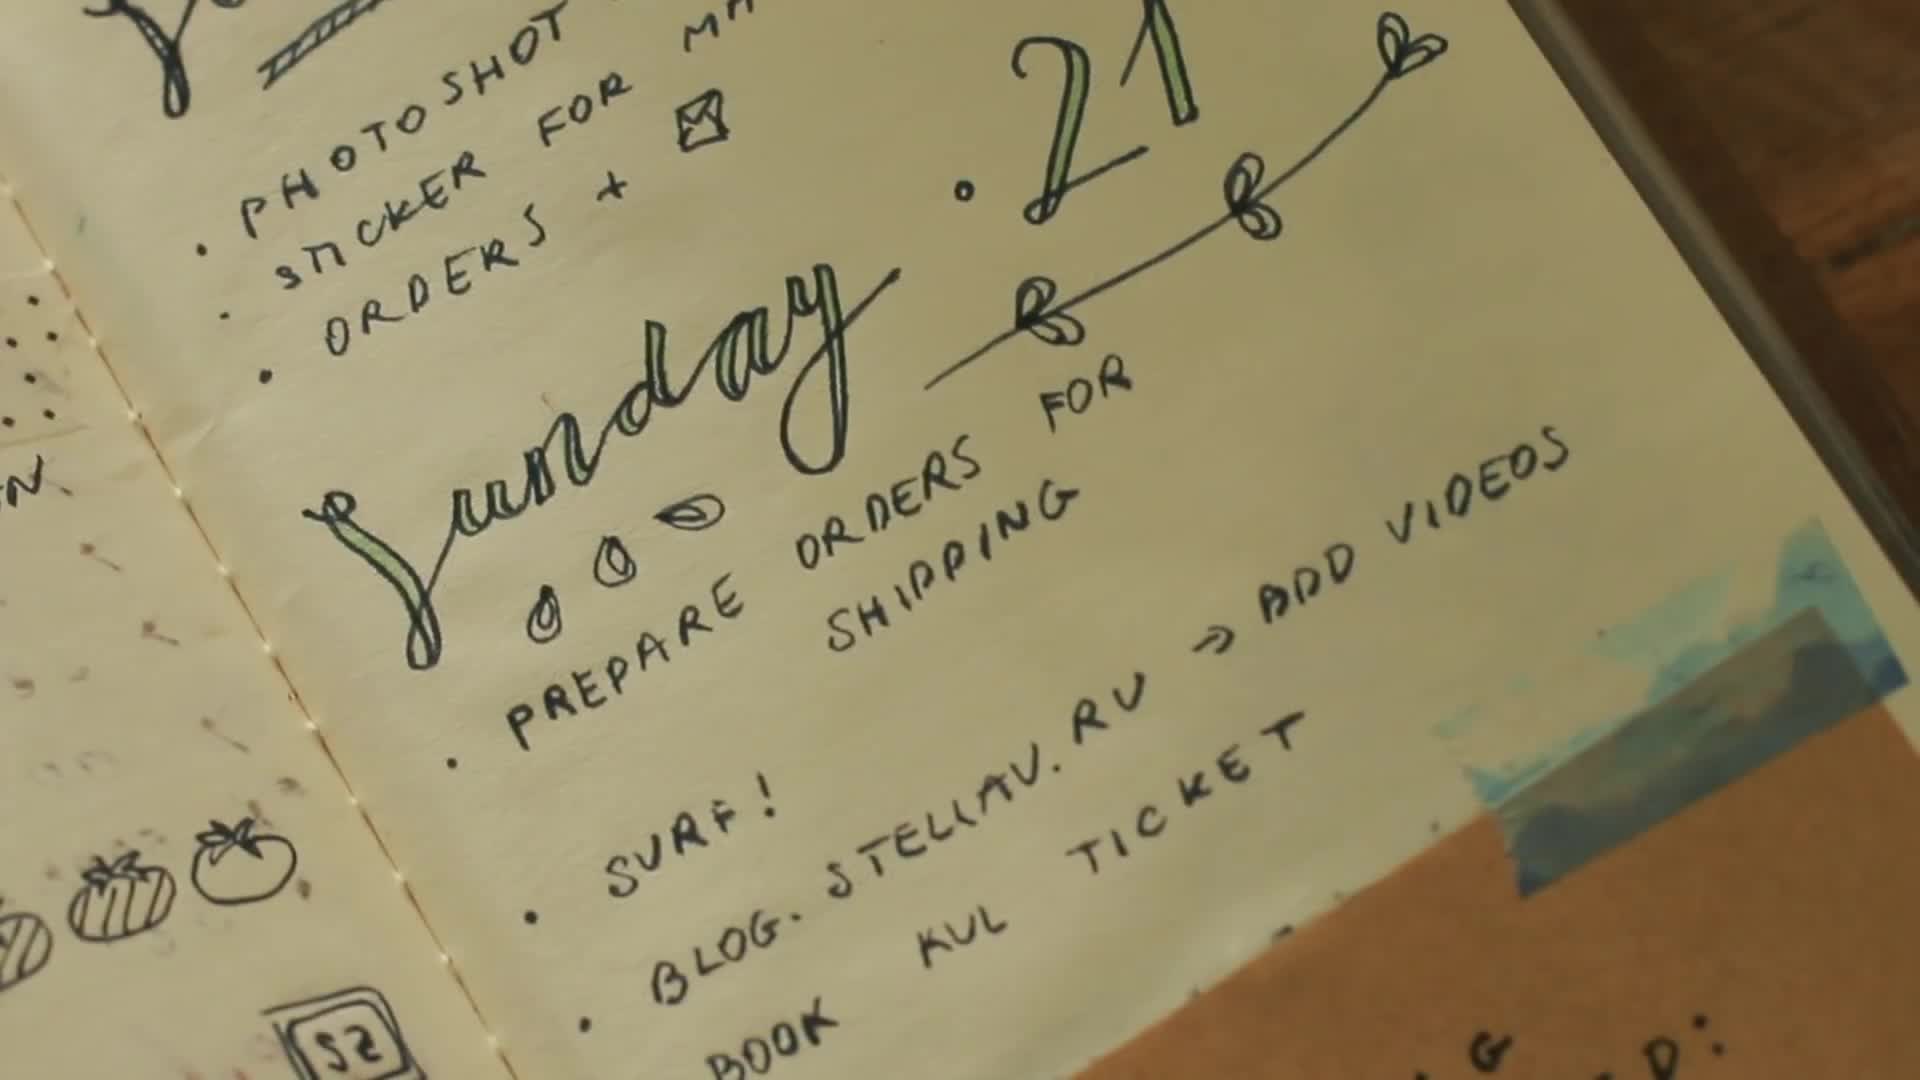 PHOTOSHOT
STICKER FOR
ORDERS +
Sunday .21
PREPARE ORDERS FOR
SHIPPING
SURF!
BLOG.STELLAV.RU → ADD VIDEOS
BOOK KUL TICKET